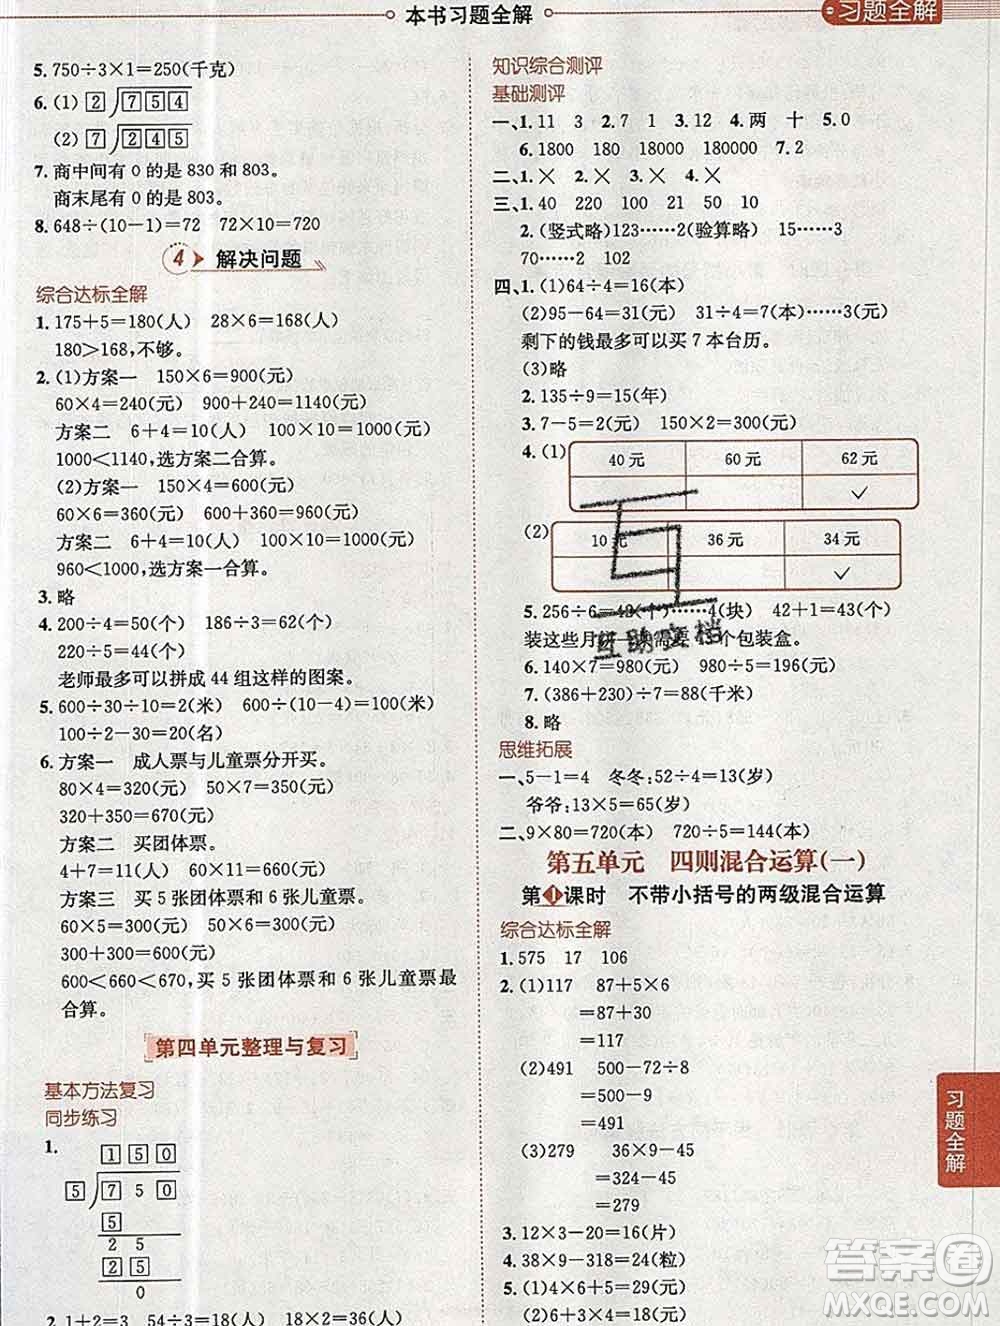 本书习题全解
习题全解
5. 750÷3×1=250(千克)
6. (1) 2 7 5 4
(2) 7 2 4 5
7. 商中间有 0 的是 830 和 803。
商末尾有 0 的是 803。
8. 648÷(10-1)=72 72×10=720
4 解决问题
综合达标全解
1. 175+5=180(人) 28×6=168(人)
180>168,不够。
2. (1)方案一 150×6=900(元)
60×4=240(元) 900+240=1140(元)
方案二 6+4=10(人) 100×10=1000(元)
1000<1140,选方案二合算。
(2)方案一 100×6=600(元)
60×6=360(元) 600+360=960(元)
方案二 6+4=10(人) 100×10=1000(元)
960<1000,选方案一合算。
3. 略
4. 200÷4=50(个) 186÷3=62(个)
220÷5=44(个)
老师最多可以拼成 44 组这样的图案。
5. 600÷30÷10=2(米) 600÷(10-4)=100(米)
100÷2-30=20(名)
6. 方案一 成人票与儿童票分开买。
80×4=320(元) 50×7=350(元)
320+350=670(元)
方案二 买团体票。
4+7=11(人) 60×11=660(元)
方案三 5人买团体票,6人买儿童票。
60×5=300(元) 50×6=300(元)
300+300=600(元)
600<660<670,买 5 张团体票和 6 张儿童票最
合算。
第四单元整理与复习
基本方法复习
同步练习
1.
1 5 0
5 7 5 0
5
2 5
2 5
0
2. 1+2=3 54÷3=18(人) 18×2=36(人)
知识综合测评
基础测评
一、1. 11 3 2. 7 1 3. 12 4. 两 十 5. 0
6. 1800 180 18000 180000 7. 2
二、1. × 2. × 3. × 4. ×
三、1. 40 220 100 21 50 10
2. (竖式略)123……2(验算略) 15……3
70……2 102
四、1. (1)64÷4=16(本)
(2)95-64=31(元) 31÷4=7(本)……3(元)
剩下的钱最多可以买 7 本台历。
(3)略
2. 135÷9=15(年)
3. 7-5=2(元) 150×2=300(元)
4. (1)
40 元 60 元 62 元
✓
(2)
10 元 36 元 34 元
✓
5. 256÷6=42(个)……4(块) 42+1=43(个)
装这些月饼一共需要 43 个包装盒。
6. 140×7=980(元) 980÷5=196(元)
7. (386+230)÷7=88(千米)
8. 略
思维拓展
一、5-1=4 冬冬:52÷4=13(岁)
爷爷:13×5=65(岁)
二、9×80=720(本) 720÷5=144(本)
第五单元 四则混合运算(一)
第1课时 不带小括号的两级混合运算
综合达标全解
1. 575 17 106
2. (1)117 87+5×6
=87+30
=117
(2)491 500-72÷8
=500-9
=491
(3)279 36×9-45
=324-45
=279
3. 12×3-20=16(片)
4. 38×9-318=24(粒)
5. (1)4×6+5=29(元)
(2)6+3×4=18(元)
习题全解
互助文档
答案圈
MXQE.COM